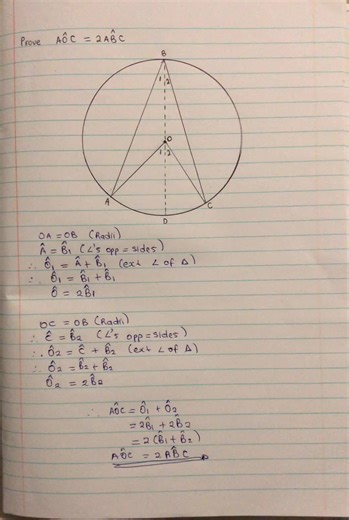 Prove AÔC = 2AB̂C
B
1 2
O
1 2
A
C
D
OA = OB (Radii)
Â = B̂1 (∠'s opp = sides)
∴ Ô1 = Â + B̂1 (ext ∠ of Δ)
∴ Ô1 = B̂1 + B̂1
Ô = 2B̂1
OC = OB (Radii)
∴ Ĉ = B̂2 (∠'s opp = sides)
∴ Ô2 = Ĉ + B̂2 (ext ∠ of Δ)
∴ Ô2 = B̂2 + B̂2
Ô2 = 2B̂2
∴ AÔC = Ô1 + Ô2
= 2B̂1 + 2B̂2
= 2(B̂1 + B̂2)
AÔC = 2AB̂C